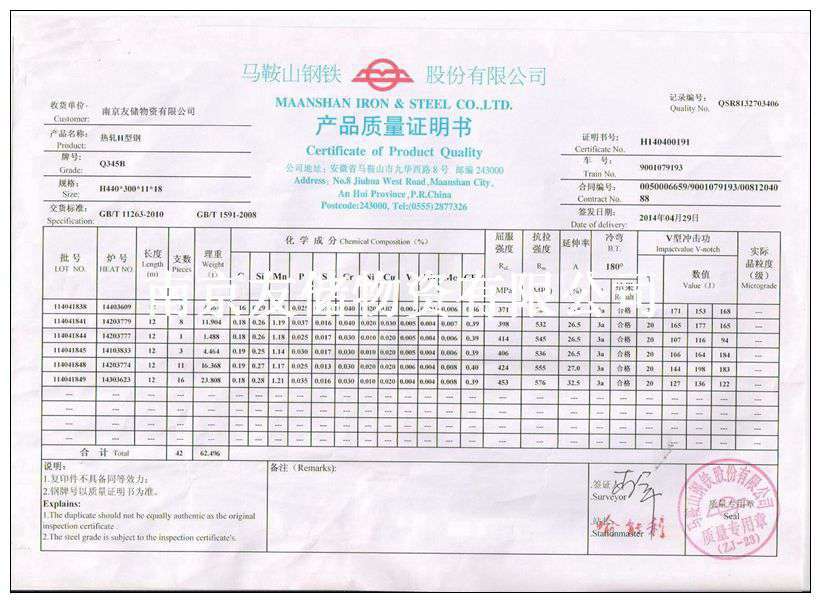 马鞍山钢铁 股份有限公司
MAANSHAN IRON & STEEL CO.,LTD.
产品质量证明书
Certificate of Product Quality
公司地址：安徽省马鞍山市九华西路8号 邮编 243000
Address: No.8 Jiuhua West Road,Maanshan City,
An Hui Province,P.R.China
Postcode:243000, Tel:(0555)2877326
收货单位： 南京友储物资有限公司
Customer:
产品名称： 热轧H型钢
Product:
牌号： Q345B
Grade:
规格： H440*300*11*18
Size:
交货标准： GB/T 11263-2010 GB/T 1591-2008
Specification:
记录编号： QSR8132703406
Quality No.
证明书号： H140400191
Certificate No.
车 号： 9001079193
Train No.
合同编号： 0050006659/9001079193/00812040
Contract No. 88
签发日期： 2014年04月29日
Date of delivery:
批号 炉号 长度 支数 理重 化学成分 Chemical Composition (%) 屈服强度 抗拉强度 延伸率 冷弯 V型冲击功 实际晶粒度（级）
LOT NO. HEAT NO. Length (m) Pieces Weight (t) MPa MPa (%) B.T. 180° Result Impactvalue V-notch Micrograde
数值
Value (J)
114041838 14403609 371 合格 171 153 168 ---
114041841 14203779 12 8 11.904 0.18 0.26 1.19 0.037 0.016 0.030 0.040 0.020 0.030 0.005 0.004 0.007 0.39 398 532 26.5 3a 合格 20 165 177 165 ---
114041844 14203777 12 1 1.488 0.18 0.26 1.18 0.031 0.016 0.030 0.020 0.020 0.005 0.004 0.006 0.39 414 545 26.5 3a 合格 20 107 116 94 ---
114041845 14103833 12 3 4.464 0.19 0.25 1.14 0.030 0.017 0.030 0.020 0.020 0.005 0.004 0.007 0.39 406 536 26.5 3a 合格 20 166 164 184 ---
114041848 14203774 12 11 16.368 0.19 0.27 1.17 0.025 0.013 0.030 0.020 0.020 0.006 0.004 0.008 0.40 424 555 27.0 3a 合格 20 144 198 183 ---
114041849 14303623 12 16 23.808 0.18 0.28 1.21 0.035 0.016 0.030 0.010 0.020 0.004 0.004 0.008 0.39 453 576 32.5 3a 合格 20 127 136 122 ---
合 计 Total 42 62.496
南京友储物资有限公司
说明：
1.复印件不具备同等效力；
2.钢牌号以质量证明书为准。
Explains:
1.The duplicate should not be equally authentic as the original
inspection certificate .
2.The steel grade is subject to the inspection certificate's.
备注（Remarks）:
.签证人
.Surveyor
.站长
.Stationmaster
质量专用章
Seal
马鞍山钢铁股份有限公司
质量专用章
(ZJ-23)